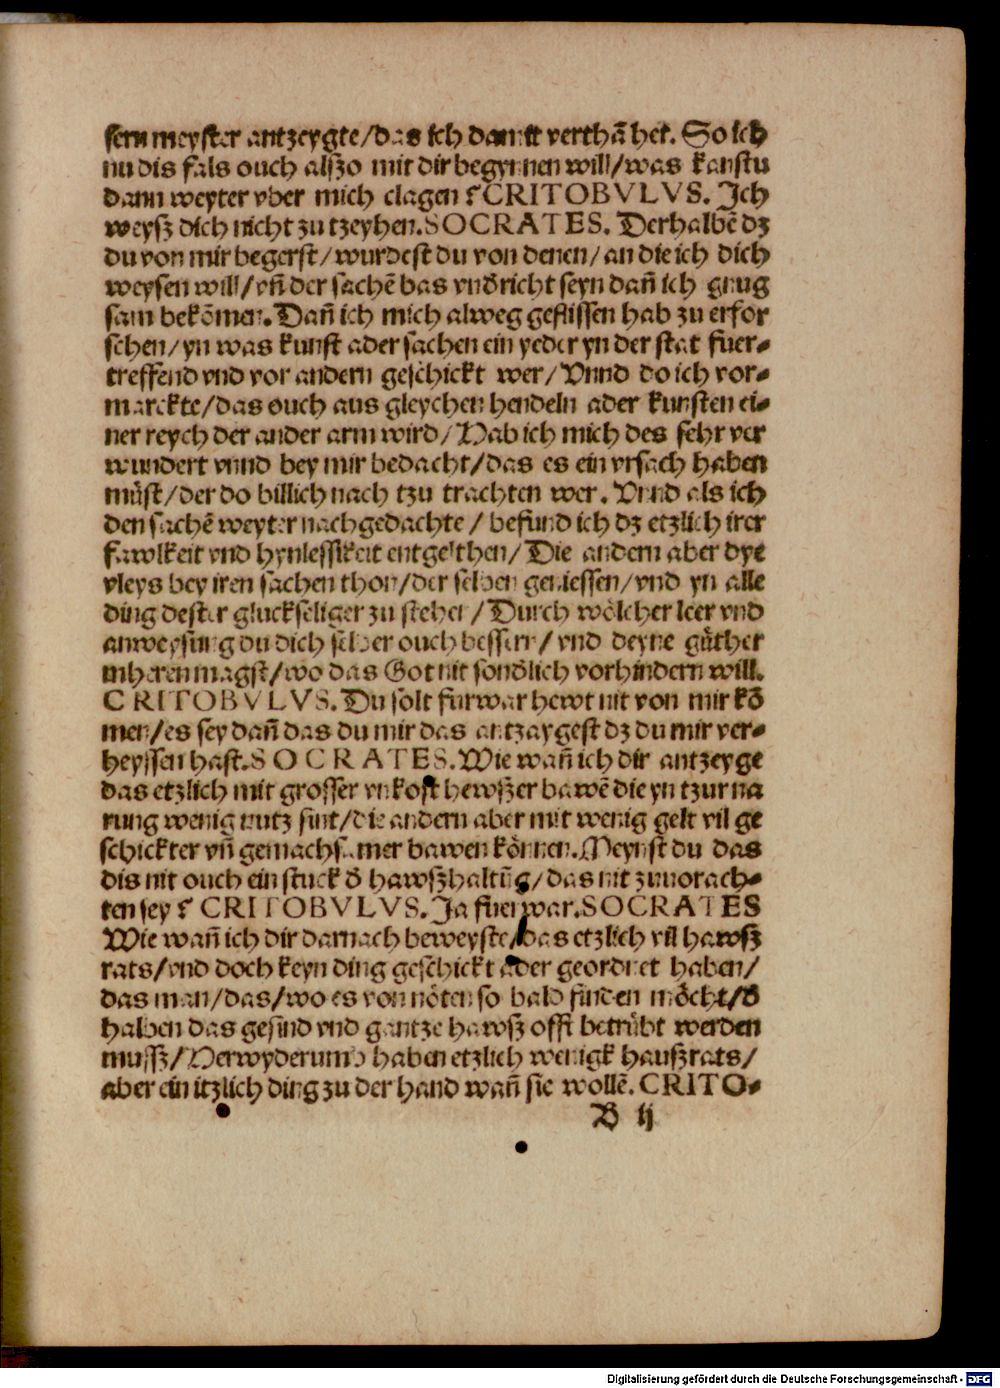 sern meyster antzeygte/das ich damit verthā het. So ich
nu dis fals ouch alszo mit dir begynnen will/was kanstu
dann weyter vber mich clagen? CRITOBVLVS. Ich
weysz dich nicht zu tzeyhen. SOCRATES. Derhalbē dz
du von mir begerst/wurdest du von denen/an die ich dich
weysen will/vn̄ der sachē bas vnd̄richt seyn dan̄ ich gnug
sam bekōmen. Dan̄ ich mich alweg geflissen hab zu erfor
schen/yn was kunst ader sachen ein yeder yn der stat fuer⸗
treffend vnd vor andern geschickt wer/Vnnd do ich vor⸗
marckte/das ouch aus gleychen hendeln ader kunsten ei⸗
ner reych der ander arm wird/Hab ich mich des sehr ver
wundert vnnd bey mir bedacht/das es ein vrsach haben
müst/der do billich nach tzu trachten wer. Vnnd als ich
den sachē weyter nachgedachte/befund ich dz etzlich irer
fawlkeit vnd hynlessikeit entgelthen/Die andern aber dye
vleys bey iren sachen thon/der selben geniessen/vnd yn alle
ding dester gluckseliger zu stehet/Durch wölcher leer vnd
anweysung du dich selber ouch bessern/vnd deyne güther
mheren magst/wo das Got nit sond̄lich vorhindern will.
CRITOBVLVS. Du solt furwar hewt nit von mir kō
men/es sey dan̄ das du mir das antzaygest dz du mir ver⸗
heyssen hast. SOCRATES. Wie wan̄ ich dir antzeyge
das etzlich mit grosser vnkost hewszer bawē die yn tzur na
rung wenig nutz sint/die andern aber mit wenig gelt vil ge
schickter vn̄ gemachsamer bawen können. Meynst du das
dis nit ouch ein stuck d̄ hawszhaltūg/das nit zuuorach⸗
ten sey? CRITOBVLVS. Ja fuerwar. SOCRATES
Wie wan̄ ich dir darnach beweyste/das etzlich vil hawsz
rats/vnd doch keyn ding geschickt ader geordnet haben/
das man/das/wo es von nöten so bald finden möcht/d̄
halben das gesind vnd gantze hawsz offt betrübt werden
mussz/Herwyderumb haben etzlich wenigk hauszrats/
aber ein itzlich ding zu der hand wan̄ sie wollē. CRITO⸗
B ij
Digitalisierung gefördert durch die Deutsche Forschungsgemeinschaft - DFG